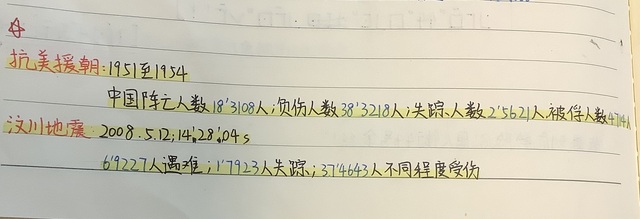 ☆
抗美援朝:1951至1954
中国阵亡人数18'3108人;负伤人数38'3218人;失踪人数2'5621人.被俘人数4714人
汶川地震 2008.5.12;14:28':04s
6'9227人遇难;1'7923人失踪;37'4643人不同程度受伤